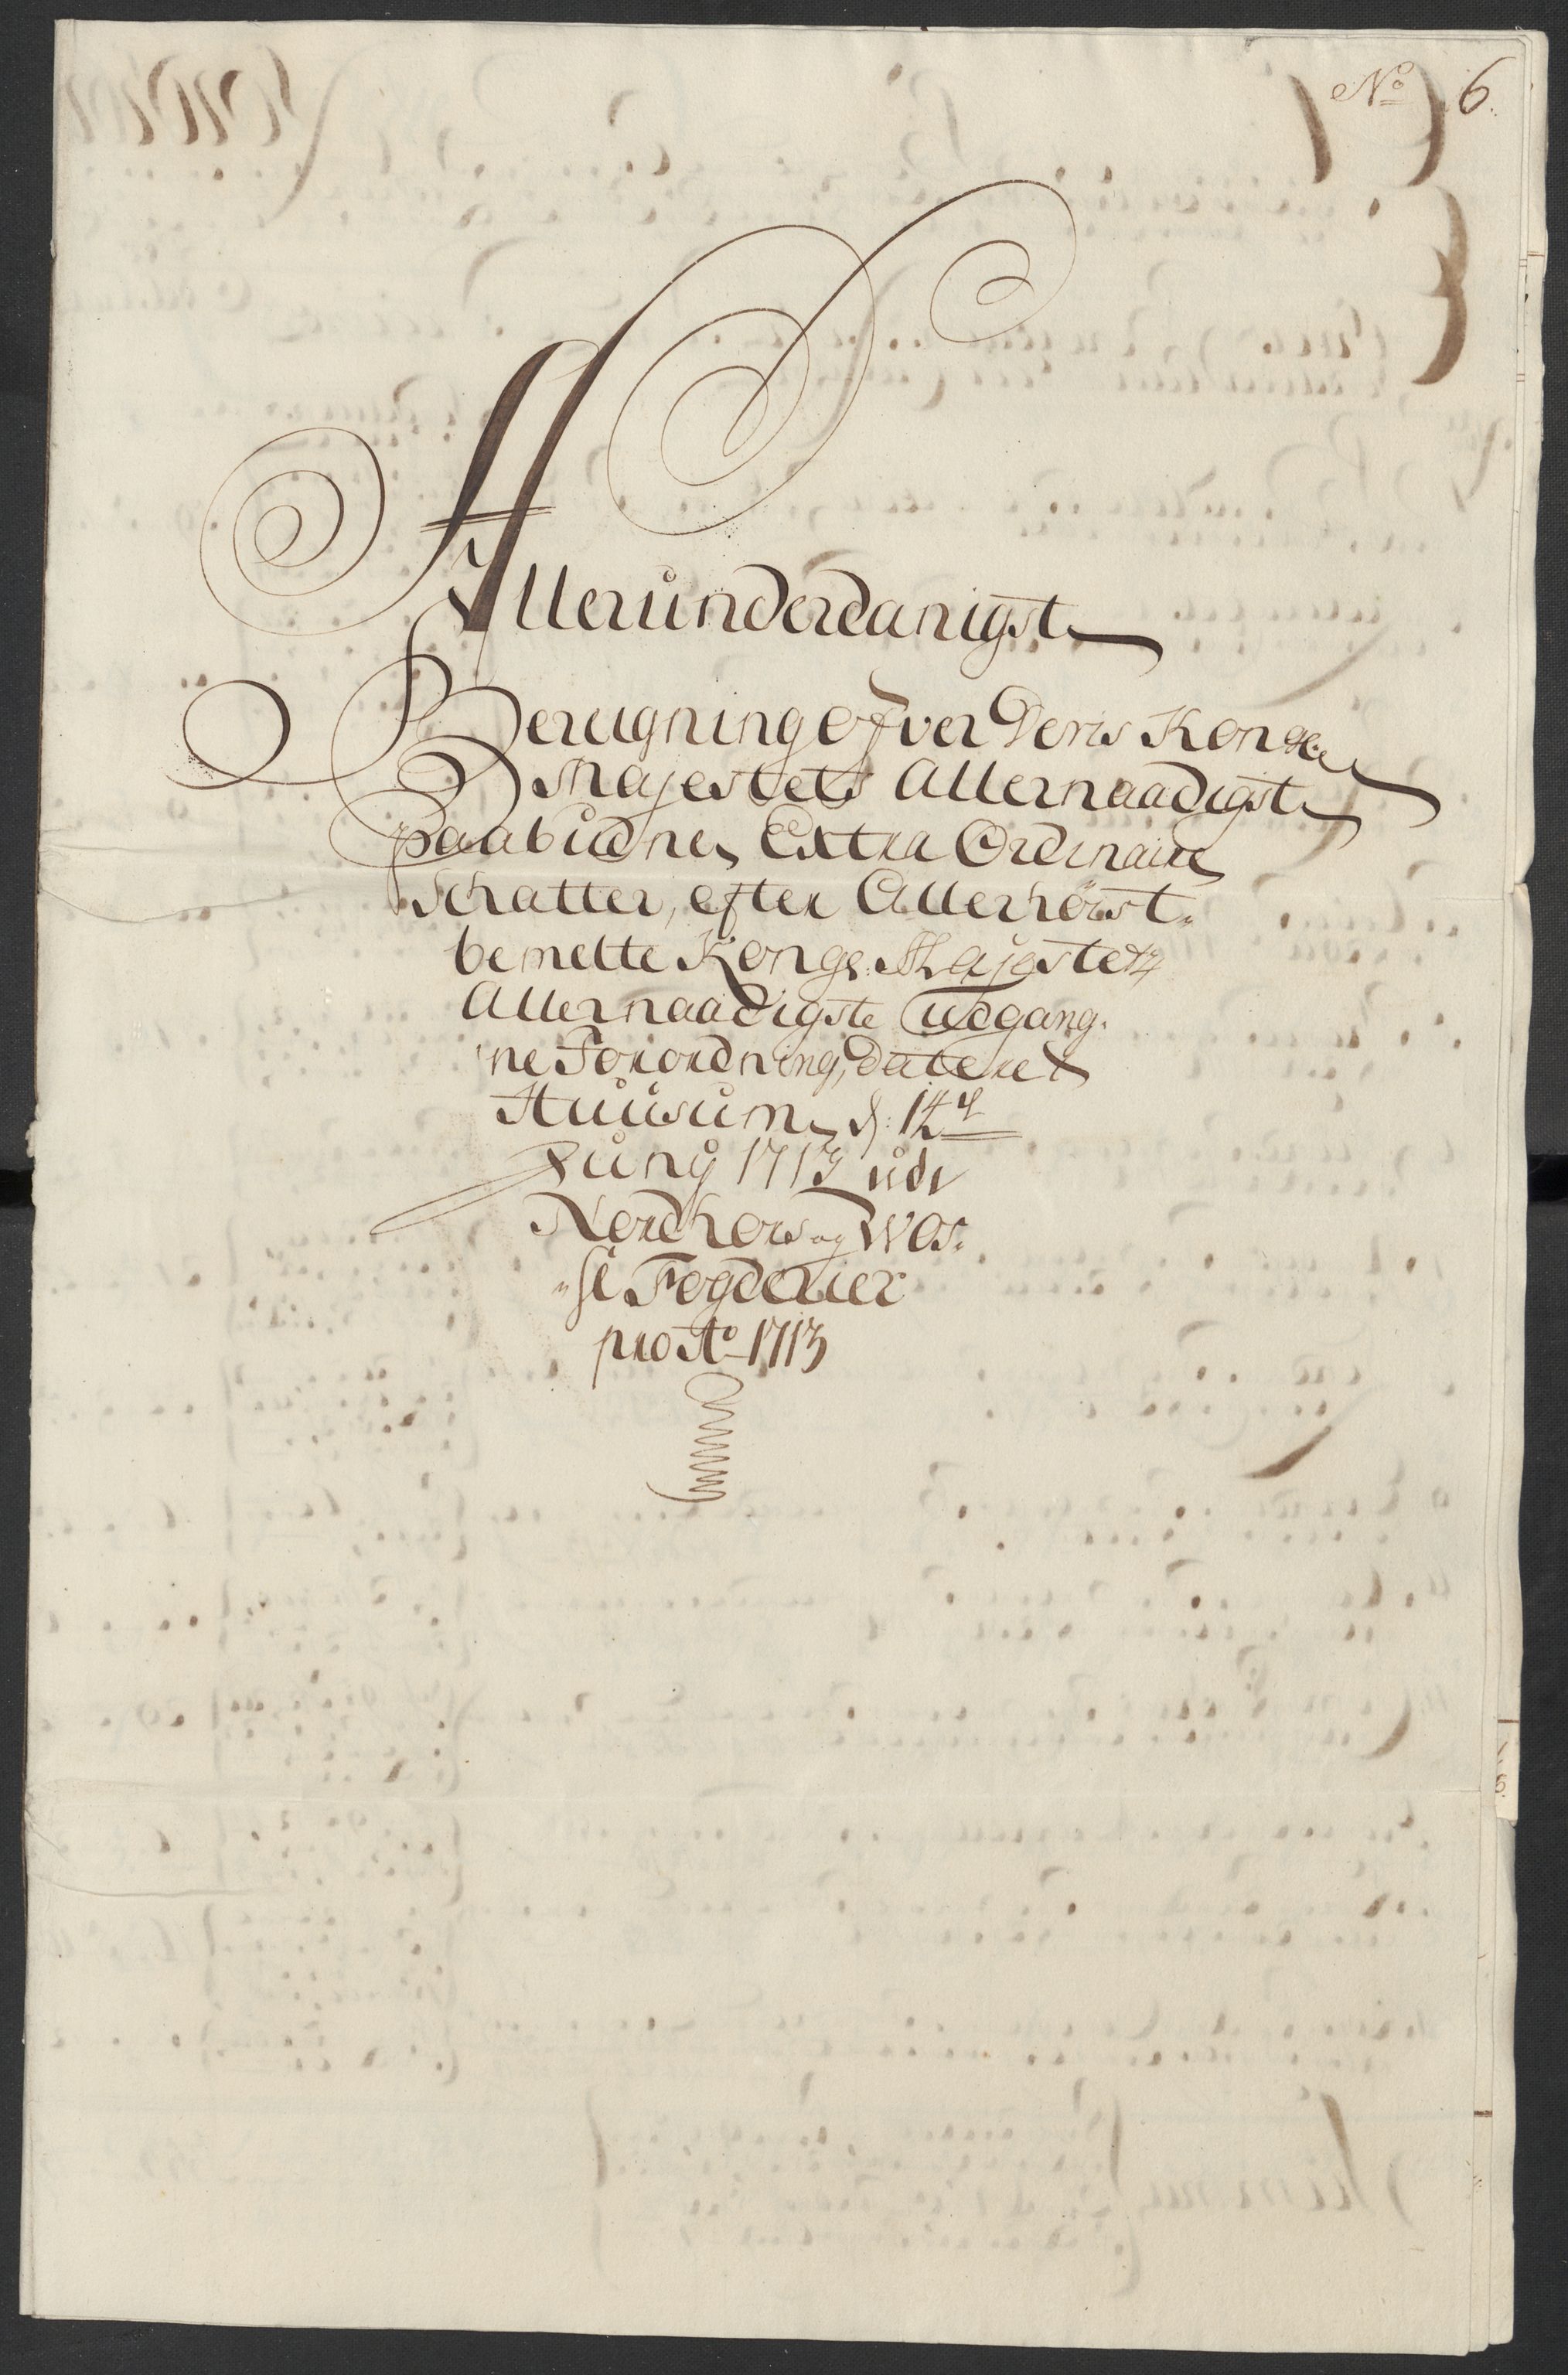 No 6.
Allerunderdanigst
Bereigning ofver Deris Konge
Majestets Allernaadigste
paabudne, Extra Ordinaire
Schatter, efter Allerhøist-
bemelte Kongl: Majestetz
Allernaadigste udgang-
ne Forordning, dateret
Huusum, d: 14
Juny 1713 udi
Nordhors og Wos-
se Fogderier
pro Ao 1713